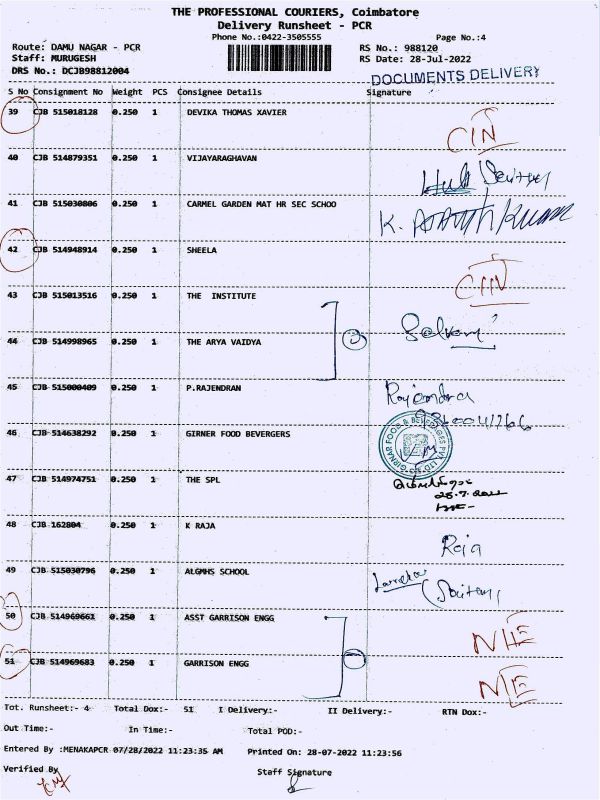 THE PROFESSIONAL COURIERS, Coimbatore
Delivery Runsheet - PCR
Phone No.:0422-3505555 Page No.:4
Route: DAMU NAGAR - PCR RS No.: 988120
Staff: MURUGESH RS Date: 28-Jul-2022
DRS No.: DCJB98812004 DOCUMENTS DELIVERY
S No Consignment No Weight PCS Consignee Details Signature
39 CJB 515018128 0.250 1 DEVIKA THOMAS XAVIER
40 CJB 514879351 0.250 1 VIJAYARAGHAVAN
41 CJB 515030806 0.250 1 CARMEL GARDEN MAT HR SEC SCHOO K.
42 CJB 514948914 0.250 1 SHEELA
43 CJB 515013516 0.250 1 THE INSTITUTE
44 CJB 514998965 0.250 1 THE ARYA VAIDYA
45 CJB 515000409 0.250 1 P.RAJENDRAN
46 CJB 514638292 0.250 1 GIRNER FOOD BEVERGERS
47 CJB 514974751 0.250 1 THE SPL
48 CJB 162804 0.250 1 K RAJA Raja
49 CJB 515030796 0.250 1 ALGMHS SCHOOL
50 CJB 514969661 0.250 1 ASST GARRISON ENGG
51 CJB 514969683 0.250 1 GARRISON ENGG
Tot. Runsheet:- 4 Total Dox:- 51 I Delivery:- II Delivery:- RTN Dox:-
Out Time:- In Time:- Total POD:-
Entered By :MENAKAPCR 07/28/2022 11:23:35 AM Printed On: 28-07-2022 11:23:56
Verified By Staff Signature